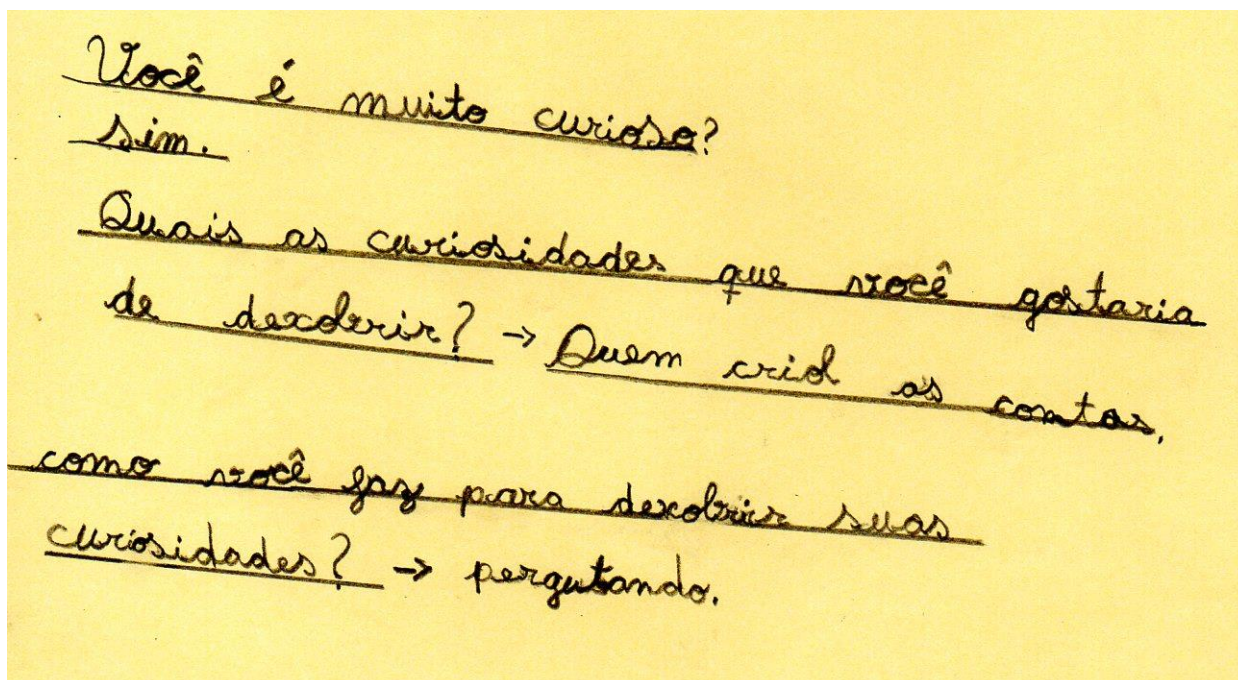 Você é muito curioso?
sim.
Quais as curiosidades que você gostaria
de dexobrir? → Quem criol as contas.
como você faz para dexobrir suas
curiosidades? → pergutando.